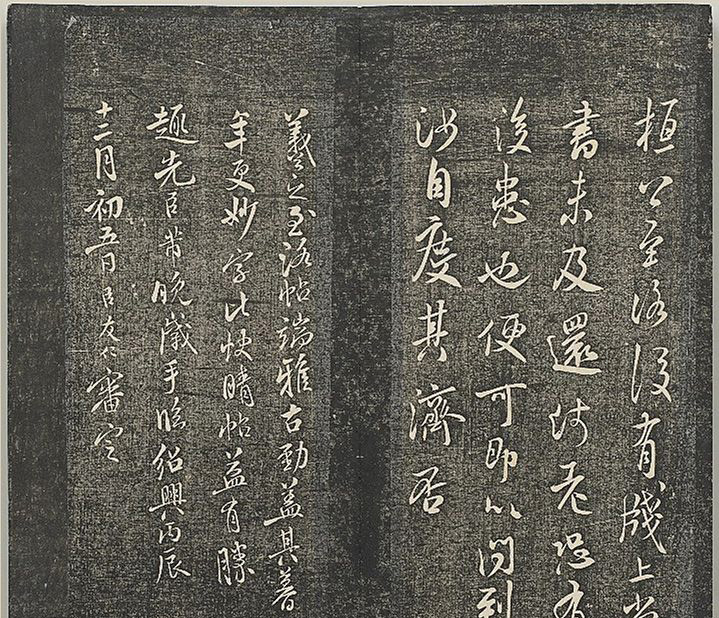 桓公至洛有牋上
書未及還恐有
後患也便可即以問到
汝自度其濟否
羲之至洛帖端雅古勁蓋其暮
年更妙字比快晴帖益有勝
趣先臣芾晚歲手臨紹興丙辰
十二月初五日臣友仁審定